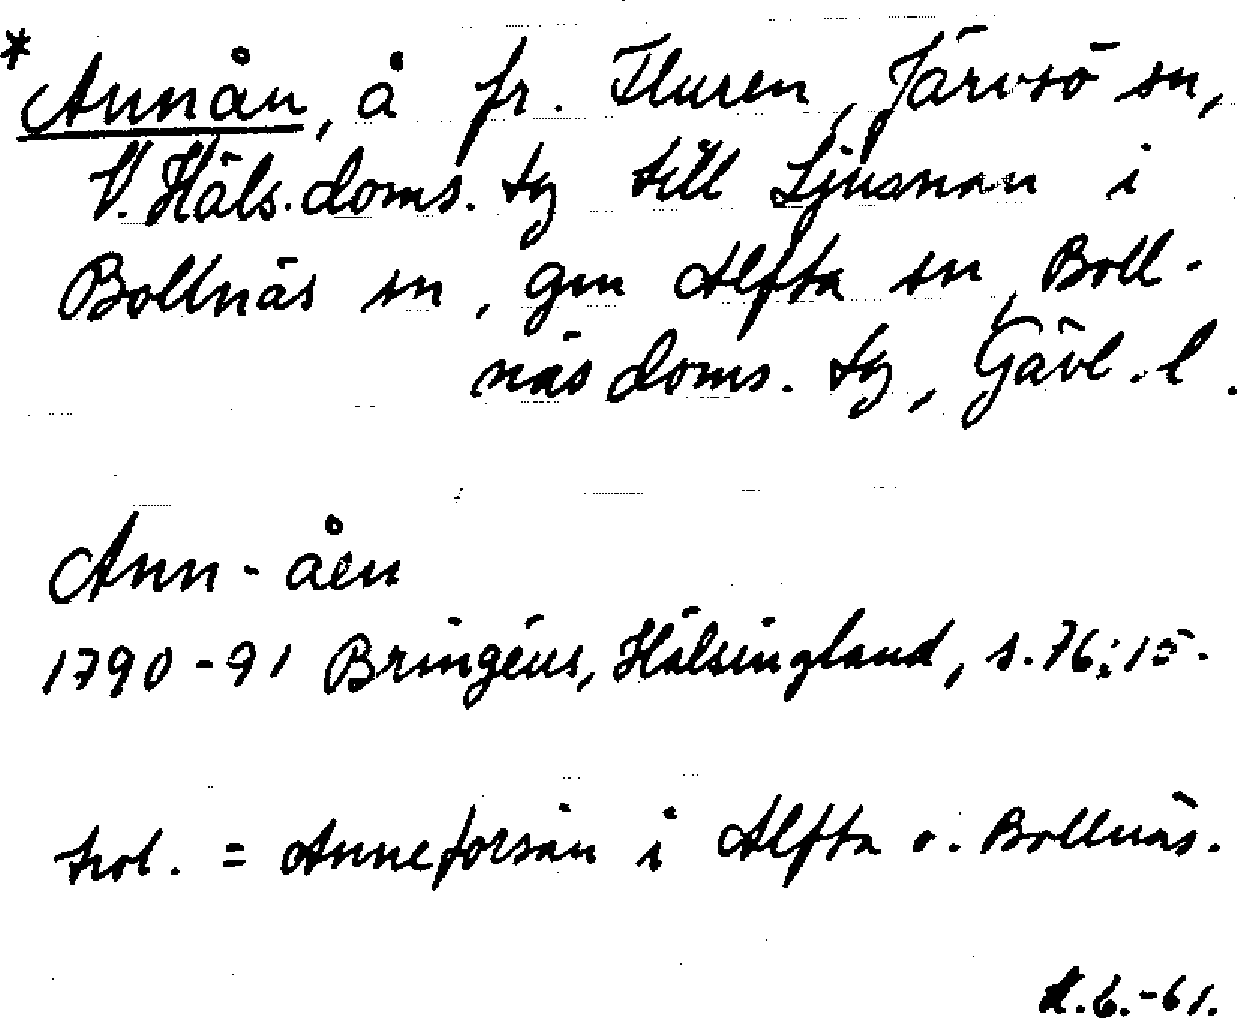 * Annån, å fr. Fluren, Järvsö sn,
V. Häls. doms. tg till Ljusnan i
Bollnäs sn, gm Alfta sn, Boll-
näs doms. tg, Gävl. l.
Ann-åen
1790-91 Bringéus, Hälsingland, s. 76:15.
trol. = Anneforsån i Alfta o. Bollnäs.
6.-61.